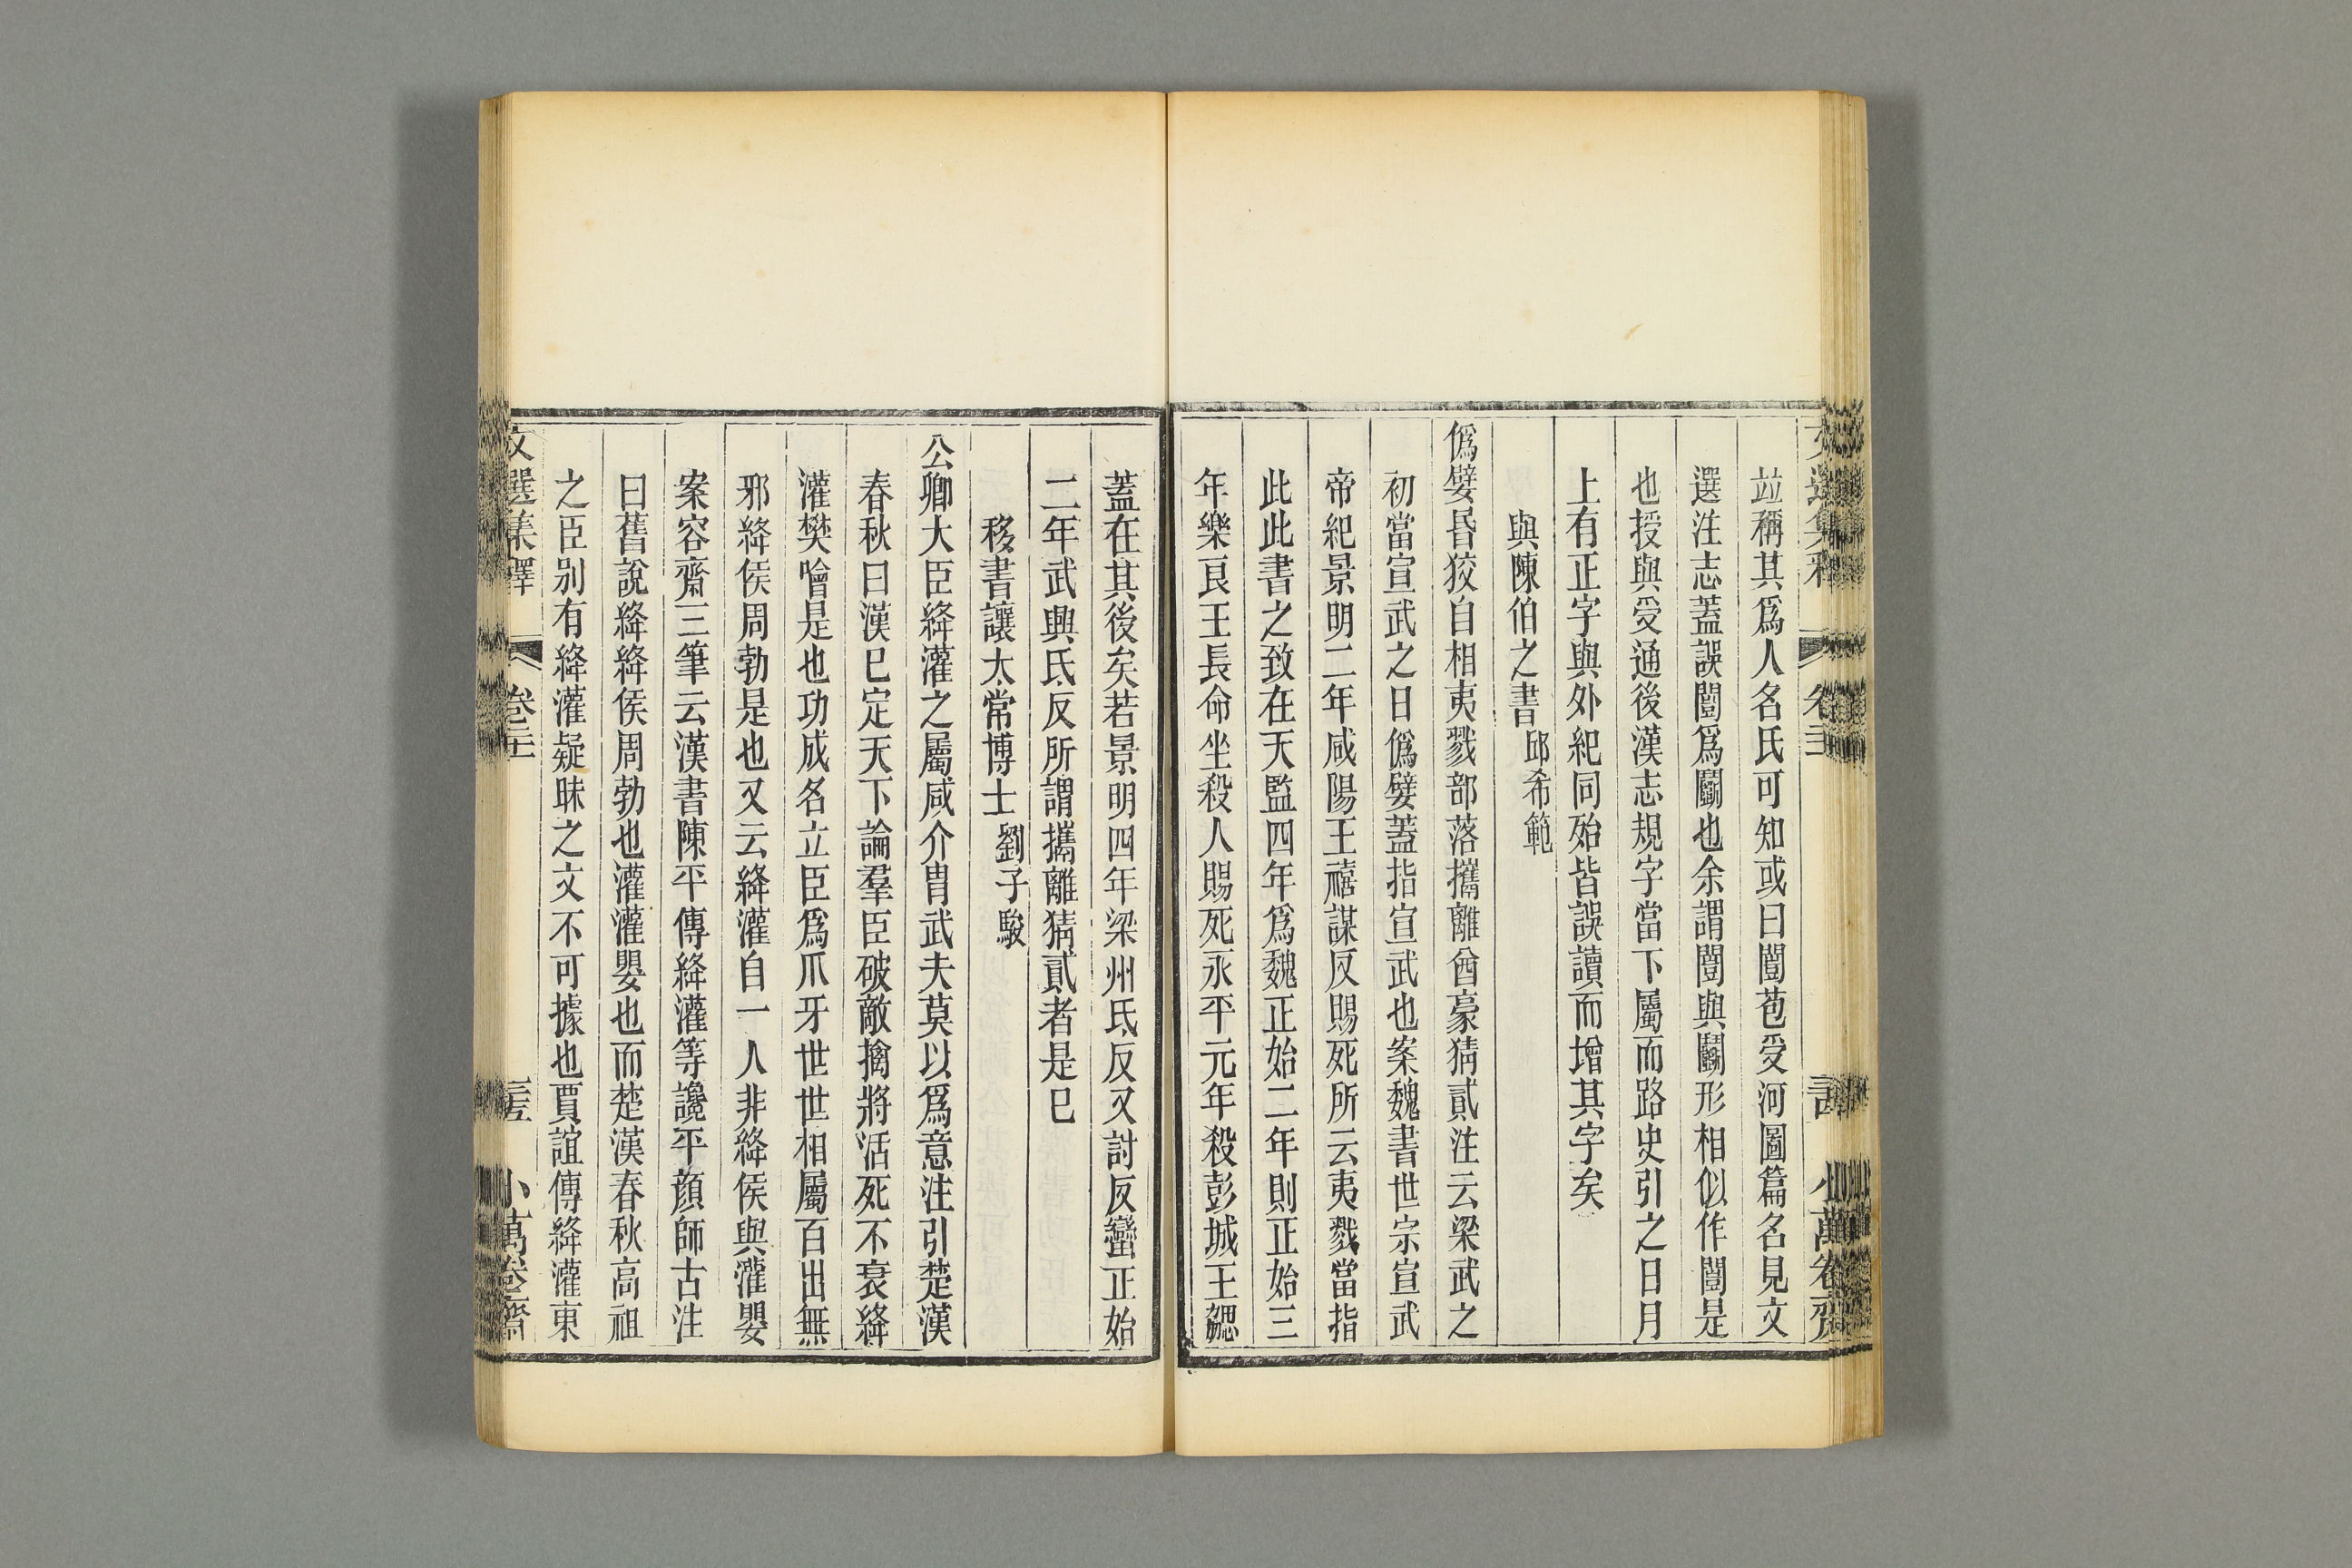 竝稱其爲人名氏可知或曰闓苞受河圖篇名見文
選注志蓋誤闓爲鬭也余謂闓與鬭形相似作闓是
也授與受通後漢志規字當下屬而路史引之日月
上有正字與外紀同殆皆誤讀而增其字矣
與陳伯之書 邱希範
僞嬖昬狡自相夷戮部落攜離酋豪猜貳注云梁武之
初當宣武之日僞嬖蓋指宣武也案魏書世宗宣武
帝紀景明二年咸陽王禧謀反賜死所云夷戮當指
此此書之致在天監四年爲魏正始二年則正始三
年樂良王長命坐殺人賜死永平元年殺彭城王勰
蓋在其後矣若景明四年梁州氐反又討反蠻正始
二年武興氐反所謂攜離猜貳者是已
移書讓太常博士 劉子駿
公卿大臣絳灌之屬咸介胄武夫莫以爲意注引楚漢
春秋曰漢已定天下論羣臣破敵擒將活死不衰絳
灌樊噲是也功成名立臣爲爪牙世世相屬百出無
邪絳侯周勃是也又云絳灌自一人非絳侯與灌嬰
案容齋三筆云漢書陳平傳絳灌等讒平顏師古注
曰舊說絳絳侯周勃也灌灌嬰也而楚漢春秋高祖
之臣别有絳灌疑昧之文不可據也賈誼傳絳灌東
文選集釋 卷二十 小萬卷齋